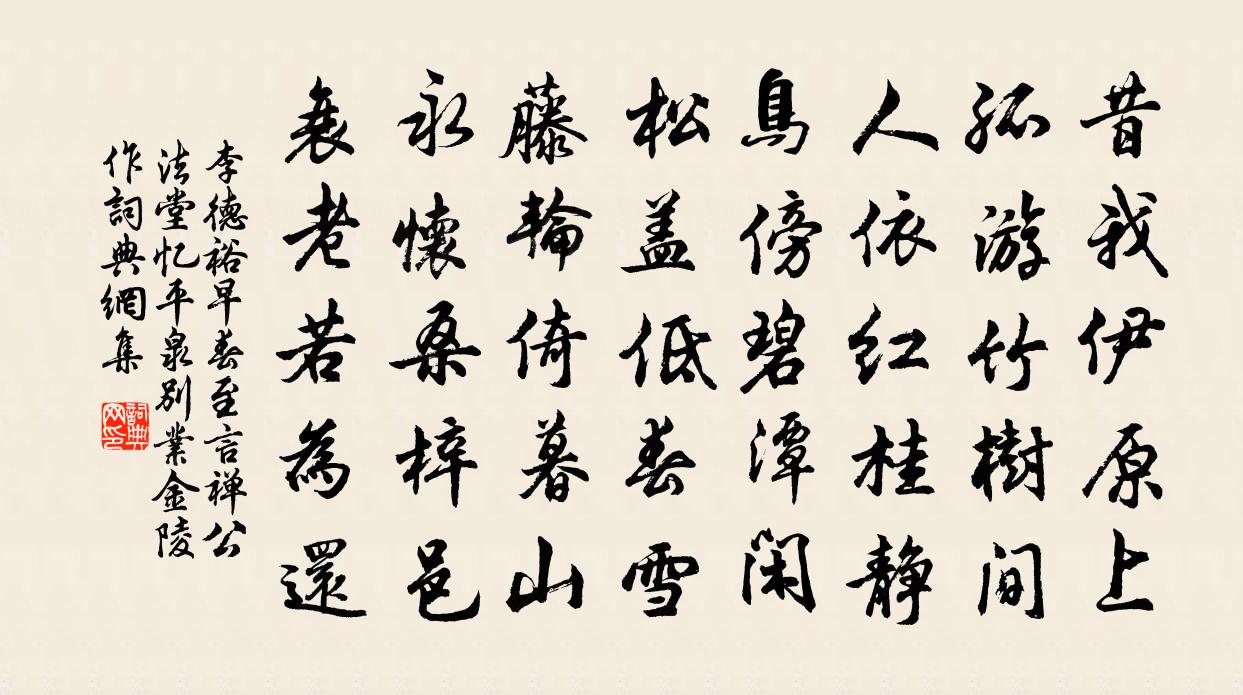 昔我伊原上
孤游竹樹间
人依红桂静
鳥傍碧潭閑
松盖低春雪
藤輪倚暮山
永懷桑梓邑
衰老若為還
李德裕早春至言禅公
法堂忆平泉别業金陵
作詞典網集
詞典网印